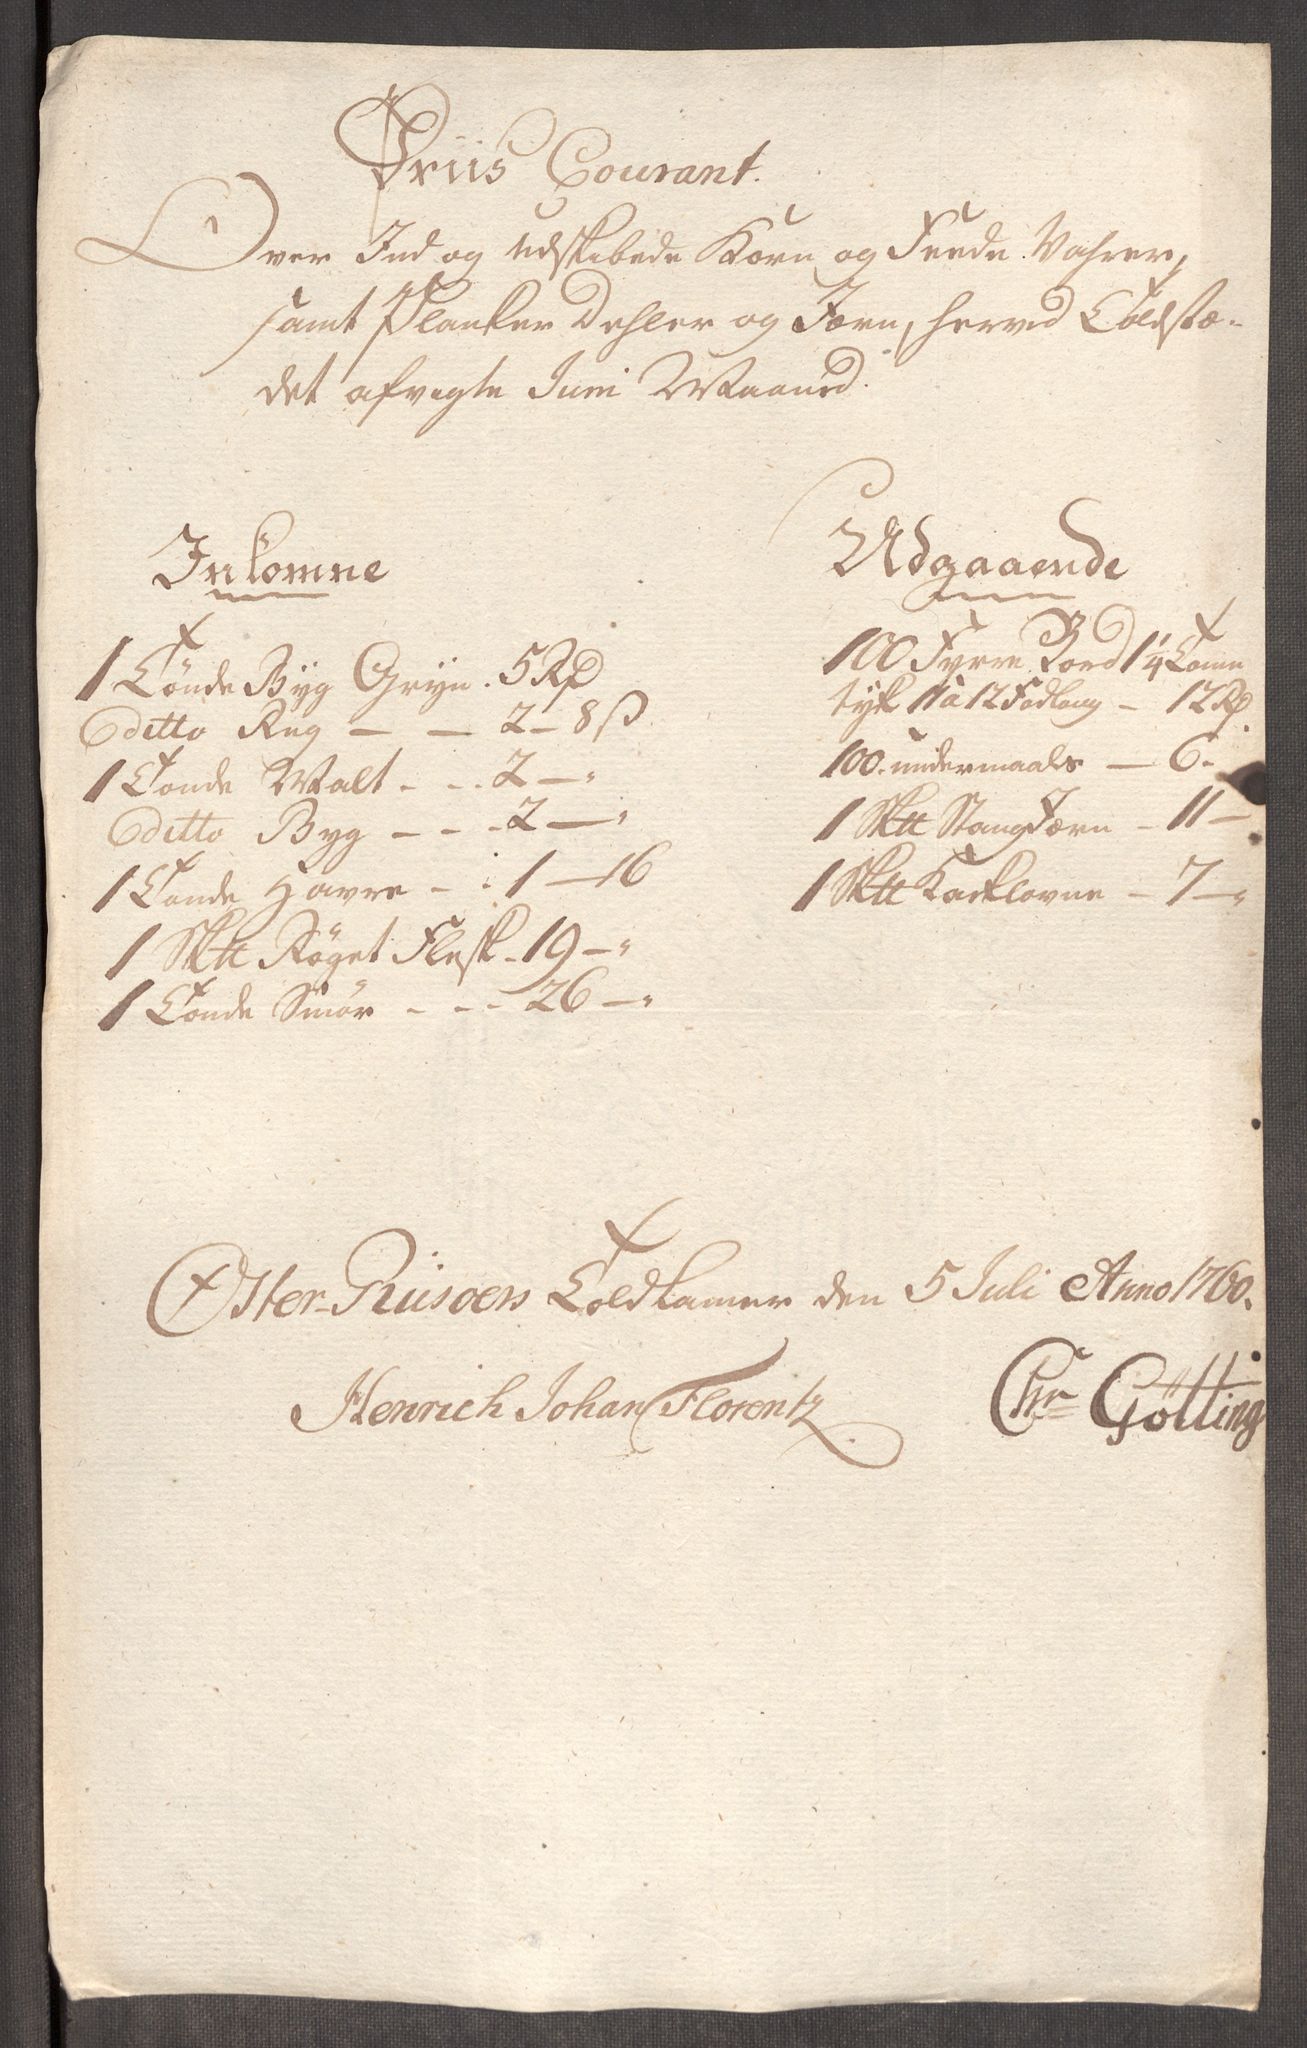 Priis Courant.
Over Ind og udskibede Korn og Feede Vahrer,
samt Planker Dehler og Jærn, herved Toldstæ-
det afvigte Juni Maaned.
Inkomne
1 Tönde Byg Gryn . 5 Rd
Editto Rug — — 2 – 8 ß
1 Tonde Malt . - . 2 — "
Editto Byg — - - 2 — "
1 Tonde Havre - . 1 — 16
1 Sktt Röget Flesk - 19 – "
1 Tonde Smör - - - 26 – "
Udgaaende
100 Fyrre Bord 1 1/4 Tomme
tyk 11 a 12 Fod lang – 12 Rd.
100. undermaals — 6 -
1 Sktt Stang Jærn – 11 –
1 Sktt Kackelovne – 7 – "
Öster-Riisoers Toldkamer den 5 Juli Anno 1760.
Henrich Johan Florentz.
Chr Götting